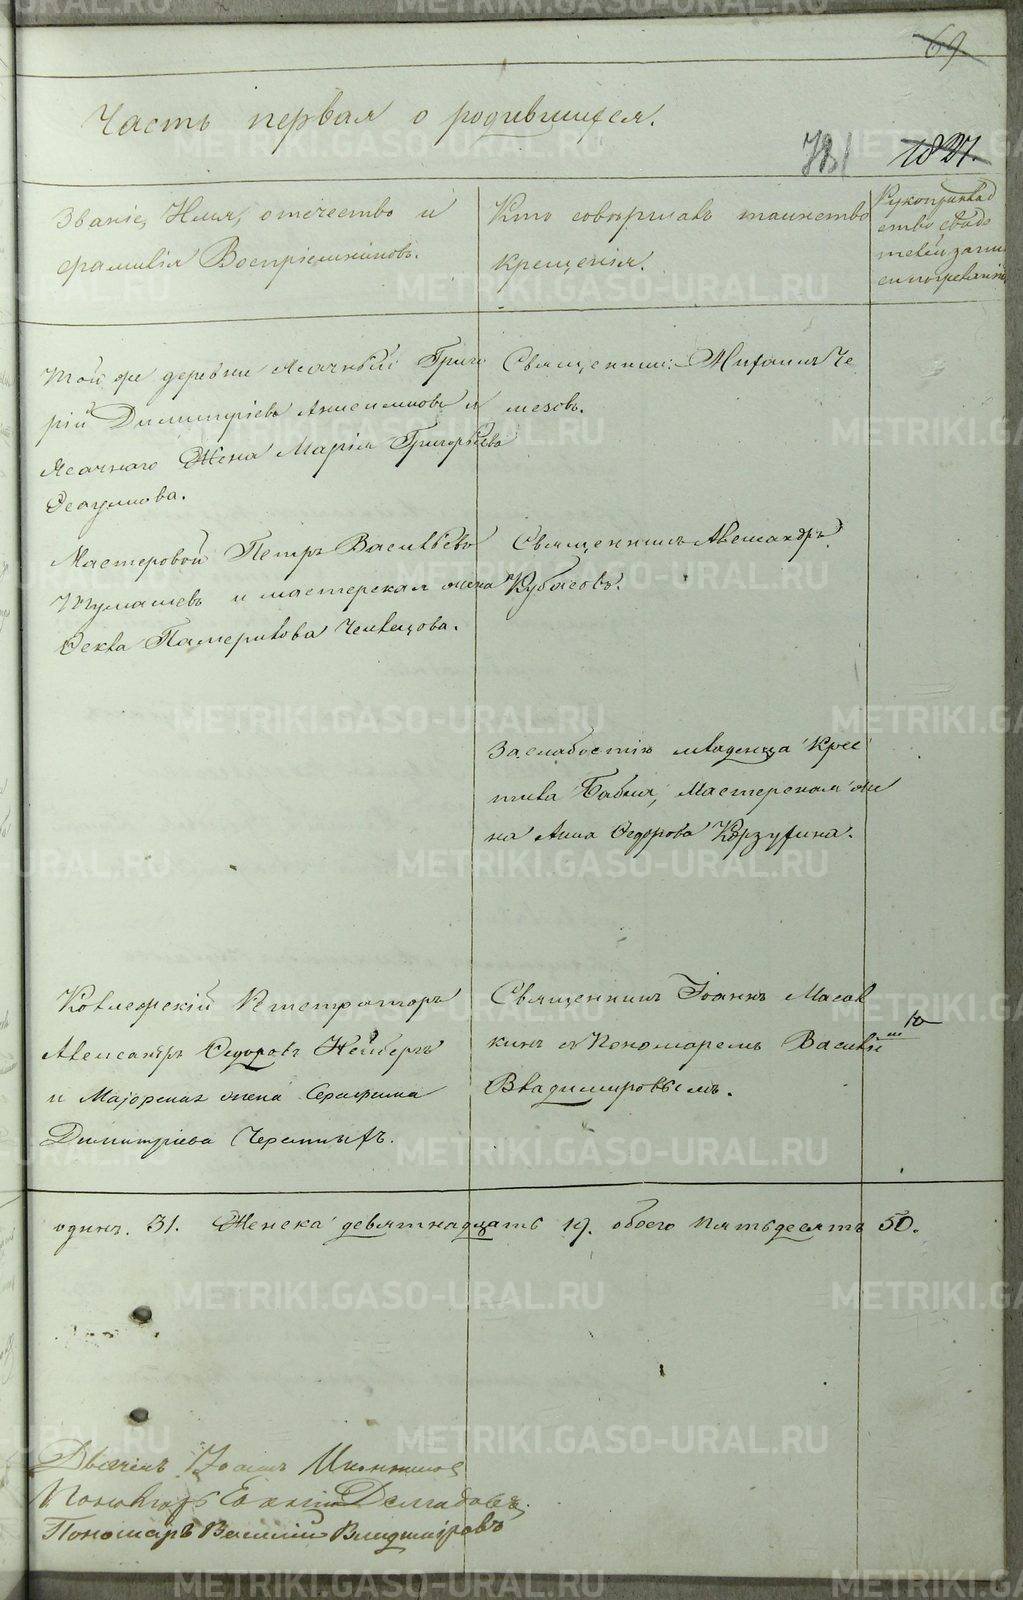 69
Часть первая о родившихся.
781 1827.
Званіе, Имя, отечество и
фамилія Воспріемниковъ.
Кто совершалъ таинство
крещенія.
Рукоприклад
ство свидѣ
телей записи
по желанію
Той же деревни Ясачный Григо
рій Димитріевъ и
Ясачнаго Жена Марія Григорьева
Священник: Михаилъ Че
мезовъ.
Мастеровой Петръ Васильевъ
Тумашевъ и мастерская жена
Фекла Панкратова
Священникъ Александръ
Кубасовъ.
За слабостію младенца крес
тила Бабка, Мастерская же
на Анна Федорова Корзухина.
Коллежскій Регистраторъ
Александръ Федоровъ Нейбергъ
и Маіорская жена Серафима
Димитріева Черепныхъ.
Священникъ Іоаннъ Масал
кинъ съ Пономаремъ Василіемъ
Владимировымъ.
одинъ. 31. Женска девятнадцать 19. обоего пятьдесятъ 50.
Дьячекъ Иоаннъ
Пономарь
Пономарь Василій Владиміровъ
METRIKI.GASO-URAL.RU